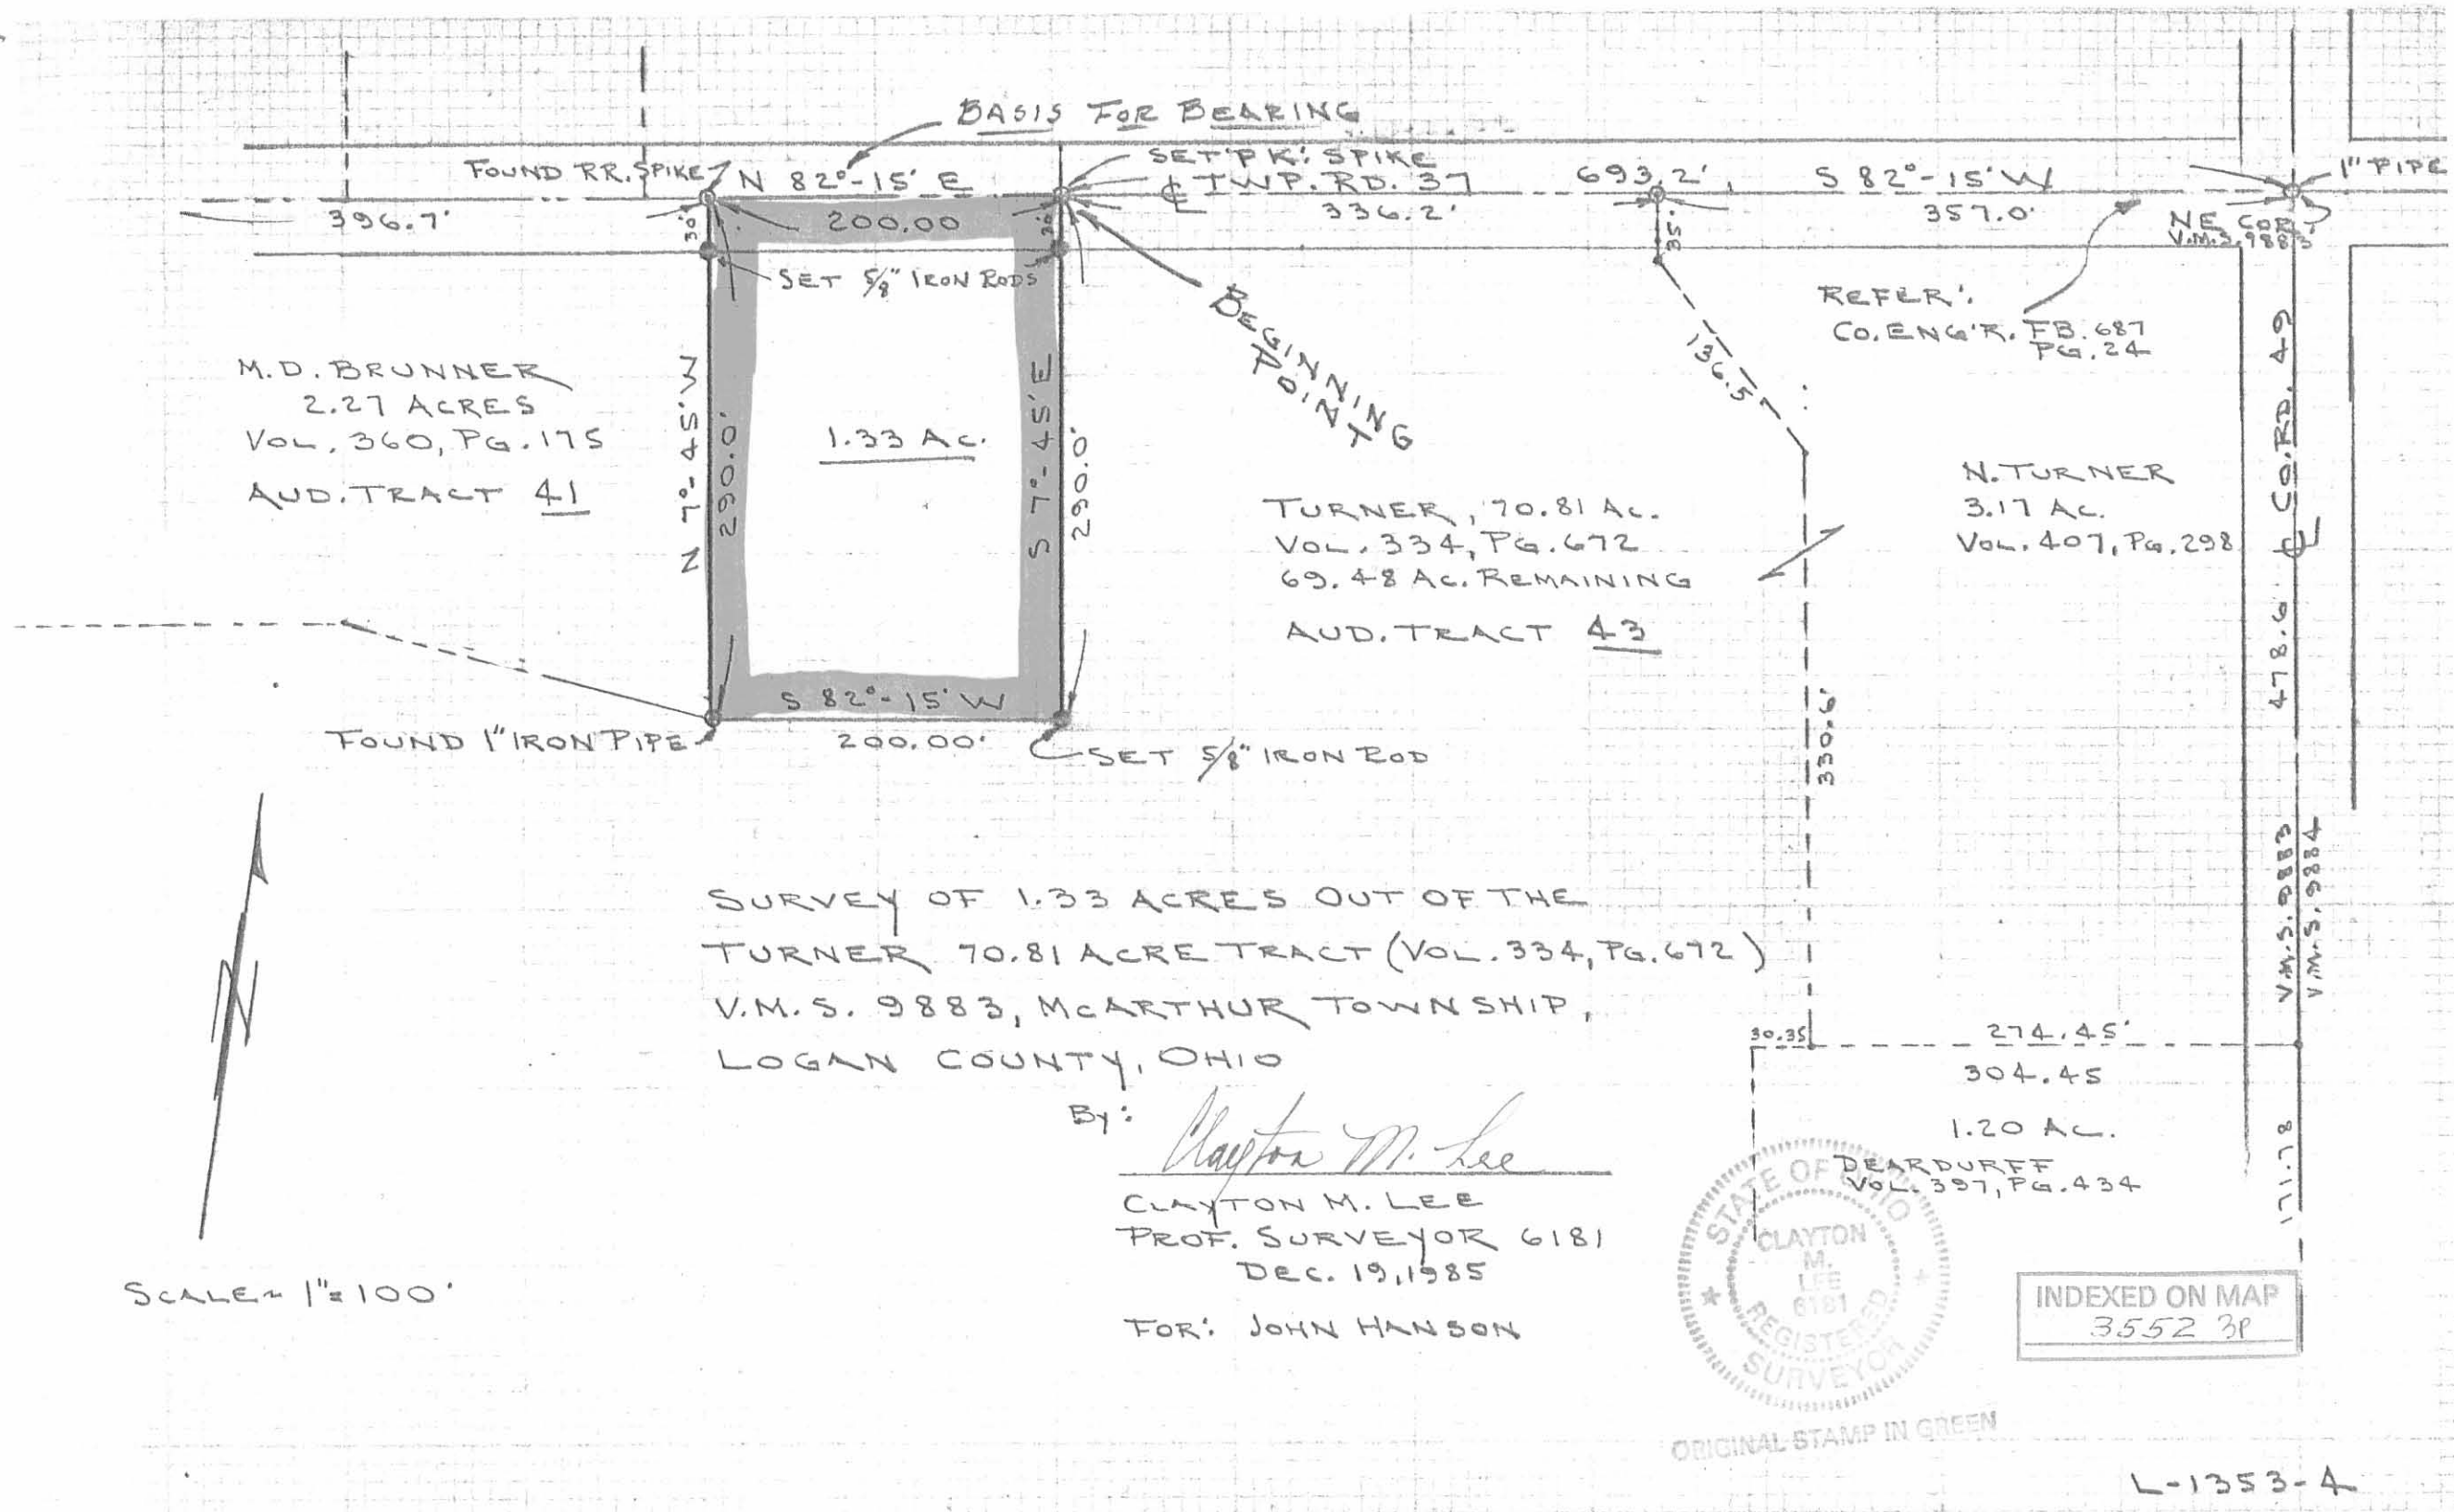 BASIS FOR BEARING
FOUND RR. SPIKE
N 82°-15' E
SET "P.K." SPIKE
℄ TWP. RD. 37
693.2'
S 82°-15' W
1" PIPE
396.7'
30'
200.00
30'
336.2'
35'
357.0'
NE. COR.
V.M.S. 9883
SET 5/8" IRON RODS
BEGINNING
POINT
REFER:
CO. ENG'R. FB. 687
PG. 24
136.5'
M.D. BRUNNER
2.27 ACRES
VOL. 360, PG. 175
AUD. TRACT 41
N 7°-45' W
290.0'
1.33 AC.
S 7°-45' E
290.0'
TURNER, 70.81 AC.
VOL. 334, PG. 672
69.48 AC. REMAINING
AUD. TRACT 43
N. TURNER
3.17 AC.
VOL. 407, PG. 298
478.6' ℄ CO. RD. 49
S 82°-15' W
200.00'
FOUND 1" IRON PIPE
SET 5/8" IRON ROD
330.6'
V.M.S. 9883
V.M.S. 9884
SURVEY OF 1.33 ACRES OUT OF THE
TURNER 70.81 ACRE TRACT (VOL. 334, PG. 672)
V.M.S. 9883, McARTHUR TOWNSHIP,
LOGAN COUNTY, OHIO
30.35
274.45'
304.45
1.20 AC.
DEARDURFF
VOL. 397, PG. 434
171.78
By:
Clayton M. Lee
CLAYTON M. LEE
PROF. SURVEYOR 6181
DEC. 19, 1985
FOR: JOHN HANSON
N
SCALE~ 1"=100'
STATE OF OHIO
CLAYTON
M.
LEE
6181
REGISTERED
SURVEYOR
INDEXED ON MAP
3552 3P
ORIGINAL STAMP IN GREEN
L-1353-4